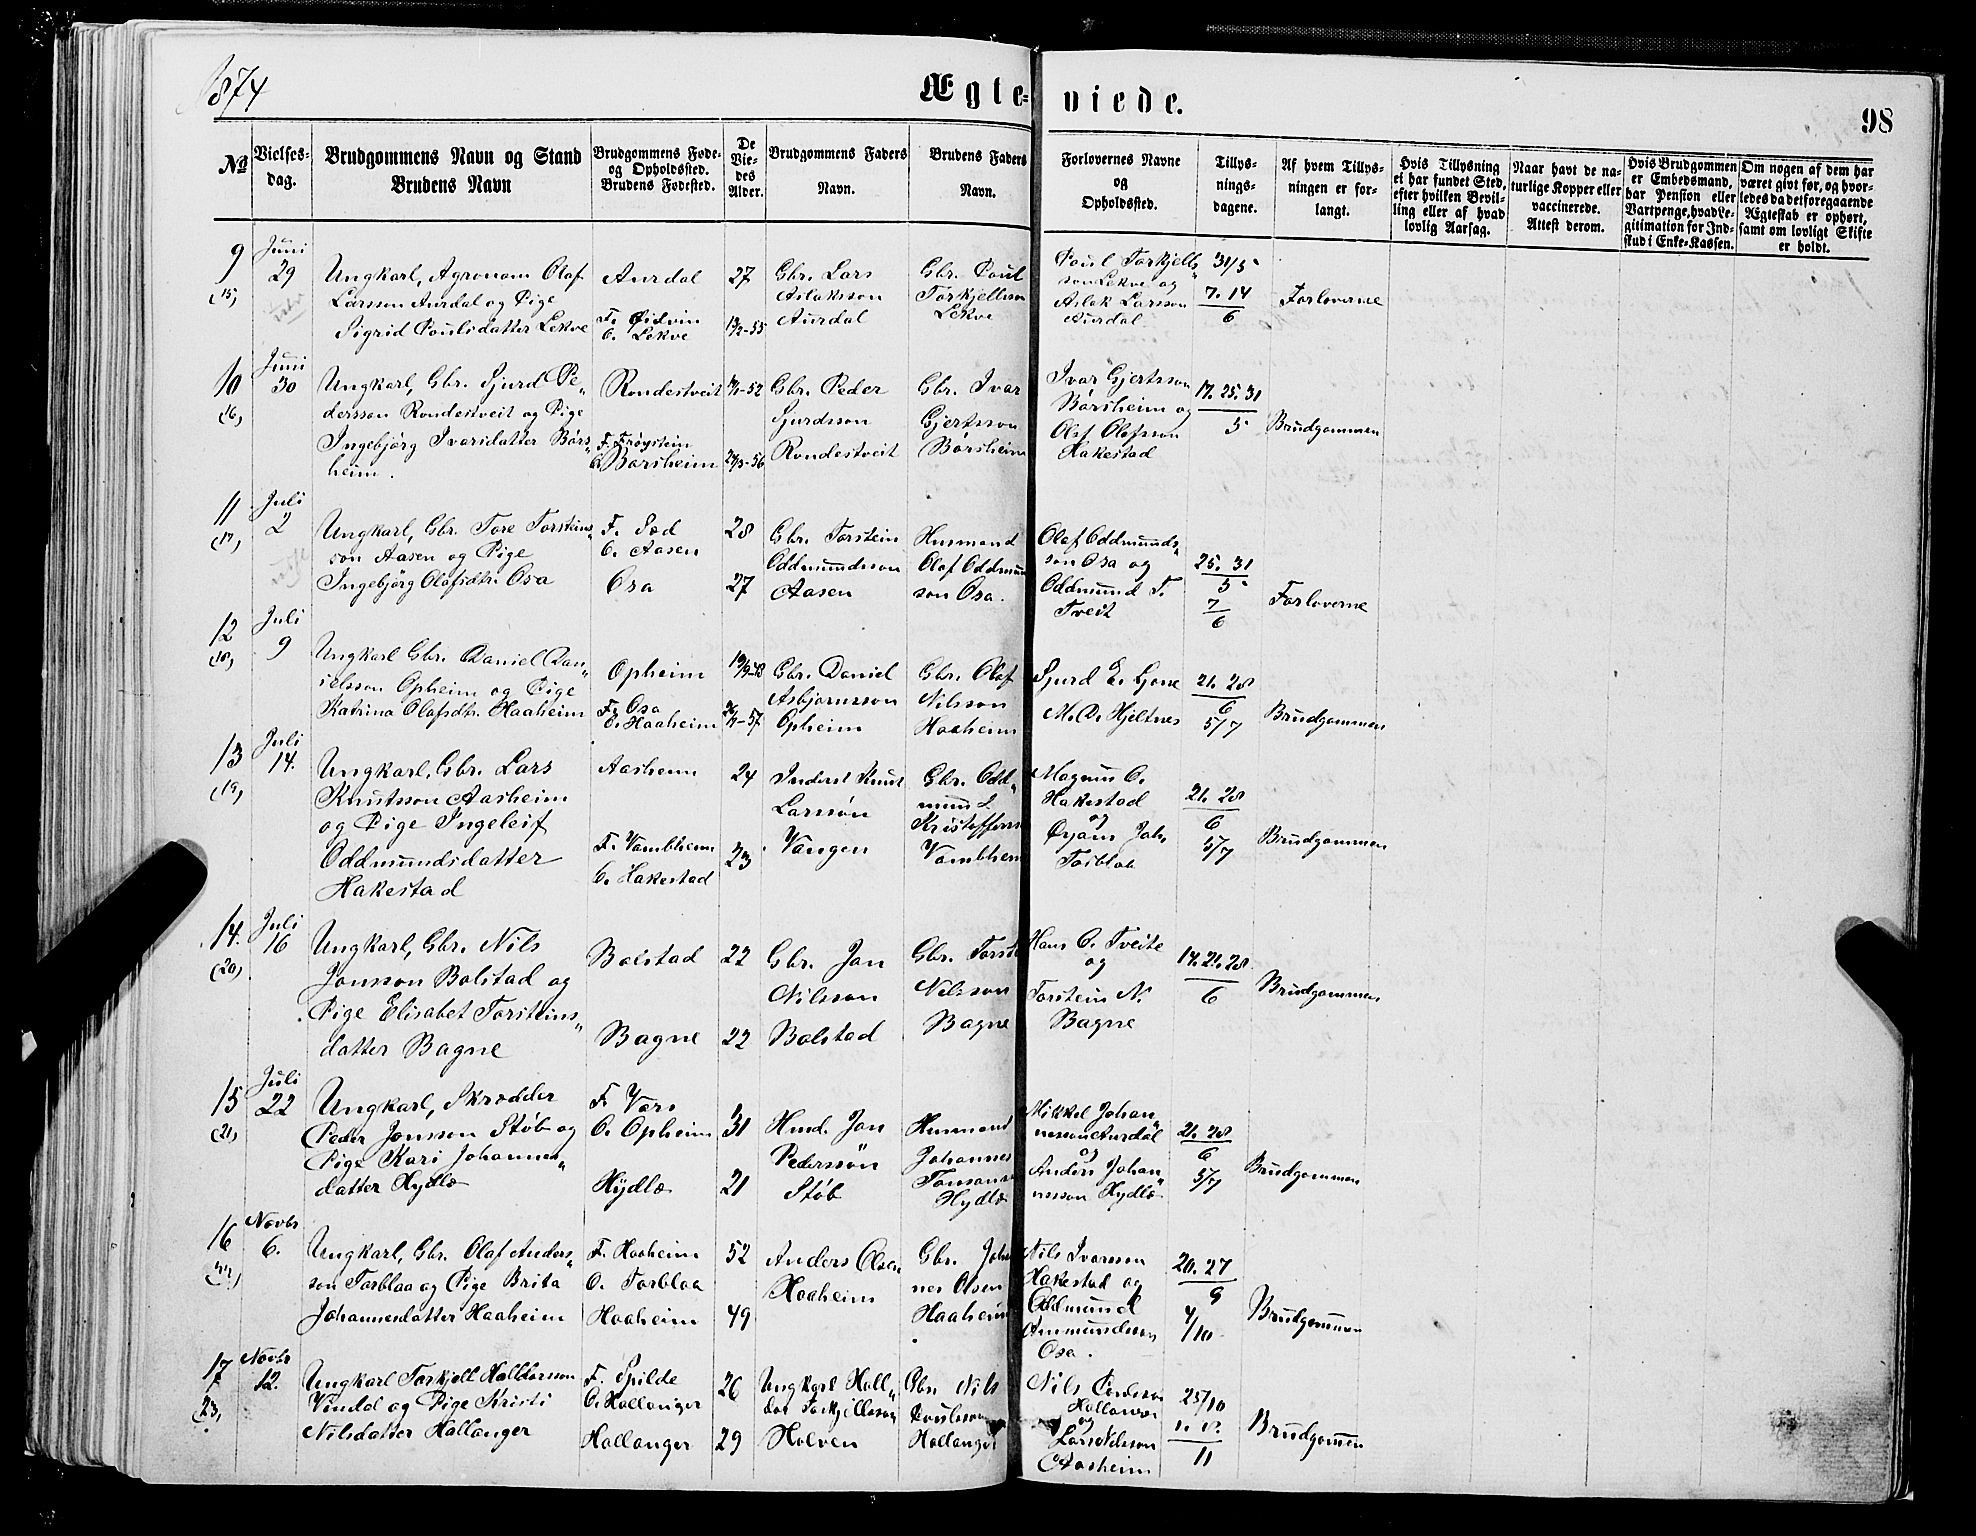 1874
Ægte-viede.
98
No
Vielses-dag.
Brudgommens Navn og Stand
Brudens Navn
Brudgommens Føde- og Opholdssted.
Brudens Fødested.
De Vie-des Alder.
Brudgommens Faders Navn.
Brudens Faders Navn.
Forlovernes Navne og Opholdssted.
Tillys-nings-dagene.
Af hvem Tillys-ningen er for-langt.
Hvis Tillysning ei har fundet Sted, efter hvilken Bevil-ling eller af hvad lovlig Aarsag.
Naar havt de na-turlige Kopper eller vaccinerede. Attest derom.
Hvis Brudgommen er Embedsmand, har Pension eller Vartpenge, hvad Le-gitimation for Ind-skud i Enke-Kassen.
Om nogen af dem har været givt før, og hvor-ledes da det foregaaende Ægteskab er ophørt, samt om lovligt Skifte er holdt.
9 (15)
Juni 29
Ungkarl, Agronom Olaf
Larsson Aurdal og Pige
Sigrid Poulsdatter Lekve
Aurdal
F. Eidvin
O. Lekve
27
Gbr. Lars
Aslaksson
Aurdal
Gbr. Poul
Torkjellsson
Lekve
Poul Torkjells"
son Lekve og
Aslak Larsson
Aurdal
31/5
7. 14
6
Forloverne
10 (16)
Juni 30
Ungkarl, Gbr. Sjurd Pe"
dersson Rondestveit og Pige
Ingebjörg Ivarsdatter Børs"
heim.
Rondestveit
F. Frøystein
O. Børsheim
Gbr. Peder
Sjurdsson
Rondestveit
Gbr. Ivar
Gjertsson
Børsheim
Ivar Gjertsson
Børsheim og
Olaf Olafsson
Hakestad
17. 25. 31
5
Brudgommen
11 (17)
Juli 2
Ungkarl, Gbr. Tore Torsteins"
son Aasen og Pige
Ingebjörg Olafsdtr. Osa
F. Sæd
O. Aasen
Osa
28
27
Gbr. Torstein
Oddmundsson
Aasen
Husmand
Olaf Oddmun
son Osa.
Olaf Oddmunds"
son Osa og
Oddmund T.
Tveit
25. 31
5
7
6
Forloverne
12 (18)
Juli 9
Ungkarl Gbr. Daniel Dan"
ielsson Opheim og Pige
Katrina Olafsdtr. Haaheim
Opheim
F. Osa
O. Haaheim
Gbr. Daniel
Asbjørnsson
Opheim
Gbr. Olaf
Nilsson
Haaheim
Sjurd E. Gjone
M. D. Hjeltnes
21. 28
6
5/7
Brudgommen
13 (19)
Juli 14.
Ungkarl, Gbr. Lars
Knutsson Aasheim
og Pige Ingeleif
Oddmundsdatter
Hakestad
Aasheim
F. Vambheim
O. Hakestad
24
23
Inderst Knut
Larssön
Vangen
Gbr. Odd"
mund
Kristoffers
Vambheim
Magnus O.
Hakestad
og
Johs
Torblaa
21. 28
6
5/7
Brudgommen
14. (20)
Juli 16
Ungkarl, Gbr. Nils
Jonsson Bolstad og
Pige Elisabet Torsteins"
datter Bagne
Bolstad
Bagne
22
22
Gbr. Jon
Nilsson
Bolstad
Gbr. Torst
Nilsson
Bagne
Hans O. Tveite
og
Torstein N.
Bagne
14. 21. 28
6
Brudgommen
15 (21)
Juli 22
Ungkarl, Skrædder
Peder Jonsson Støb og
Pige Kari Johannes"
datter Hydle
F. Vors
O. Opheim
Hydle
31
21
Husd. Jon
Pederssön
Støb
Husmand
Johannes
Hydle
Mikkel Johan"
nesson Aurdal
og
Anders Johan"
nesson Hydle
21. 28
6
5/7
Brudgommen
16 (22)
Novbr 6.
Ungkarl, Gbr. Olaf Anders"
son Torblaa og Pige Brita
Johannesdatter Haaheim
F. Haaheim
O. Torblaa
Haaheim
52
49
Anders Olsen
Haaheim
Gbr. Johan
nes Olsen
Haaheim
Nils Ivarsson
Hakestad og
Oddmund
Ammundsson
Osa.
20. 27
9
4/10
Brudgommen
17 (23)
Novbr 12.
Ungkarl Torkjell Halldorsson
Vindal og Pige Kristi
Nilsdatter Hallanger
F. Spilde
O. Hallanger
Hallanger
26
29
Ungkarl Hall"
dor Torkjellsson
Holven
Gbr. Nils
Poulsson
Hallanger
Nils Poulsson
Hallanger
og
Lars Nilsson
Aasheim
25/10
1. 8.
11
Brudgommen